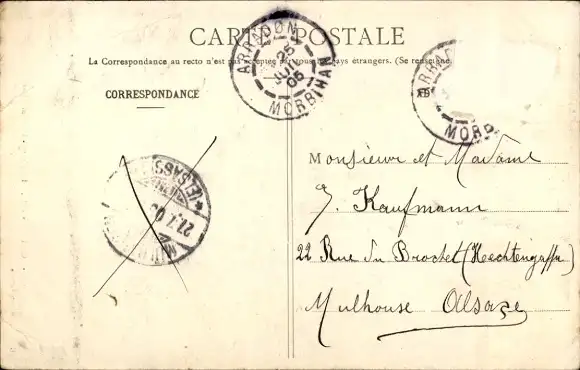 CARTE POSTALE
La Correspondance au recto n'est pas acceptée par tous les pays étrangers. (Se renseigner
CORRESPONDANCE
ARRADON
25
JUIL
05
MORBIHAN
ARRADO
MORB
(ELSASS)
27.7.05
MÜL
Monsieur et Madame
J. Kaufmann
22 Rue du Brochet (Hechtengasse)
Mulhouse Alsace